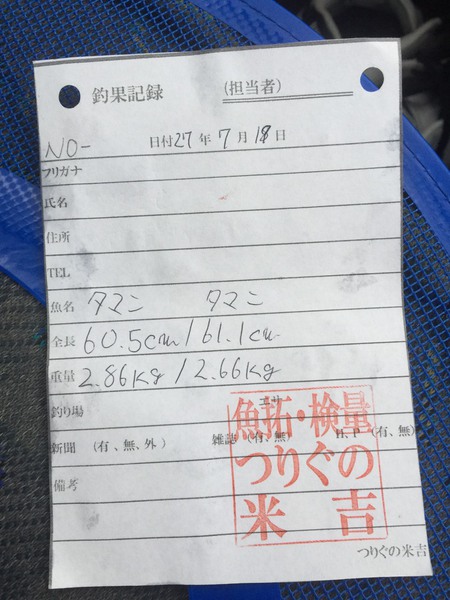 釣果記録 (担当者)
NO- 日付 27 年 7 月 18 日
フリガナ
氏名
住所
TEL
魚名 タマン タマン
全長 60.5cm/61.1cm
重量 2.86kg/2.66kg
釣り場 エサ
新聞 (有、無、外) 雑誌 (有、無) H.P (有、無)
備考
魚拓・検量
つりぐの
米吉
つりぐの米吉